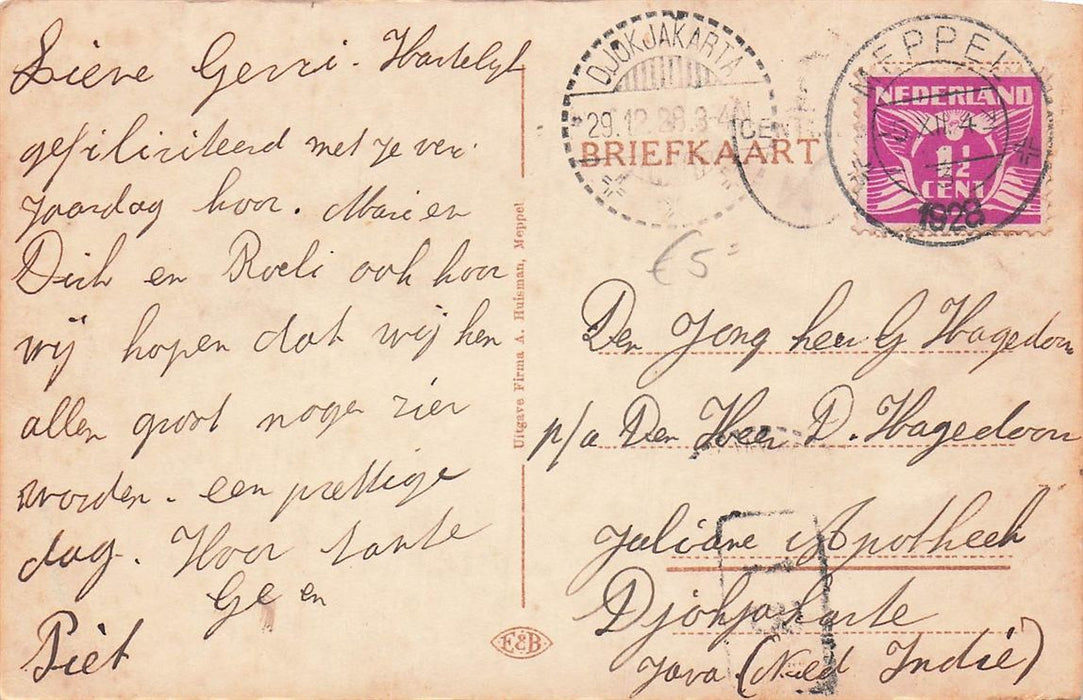 Lieve Gerri. Hartelijk
gefiliciteerd met je ver.
jaardag hoor. Marie en
Dich en Roeli ook hoor
wij hopen dat wij hen
allen groot mogen zien
worden. een prettige
dag. Hoor tante
Ge en
Piet
Uitgave Firma A. Huisman, Meppel
E&B
DJOKJAKARTA
29.12.28.3-4N
BRIEFKAART
CENT
MEPPEL
XII.4
1928
NEDERLAND
1½
CENT
€5=
Den Jong heer G Hagedoorn
p/a Den Heer D. Hagedoorn
Juliane Apotheek
Djokjakarte
Java (Ned Indië)